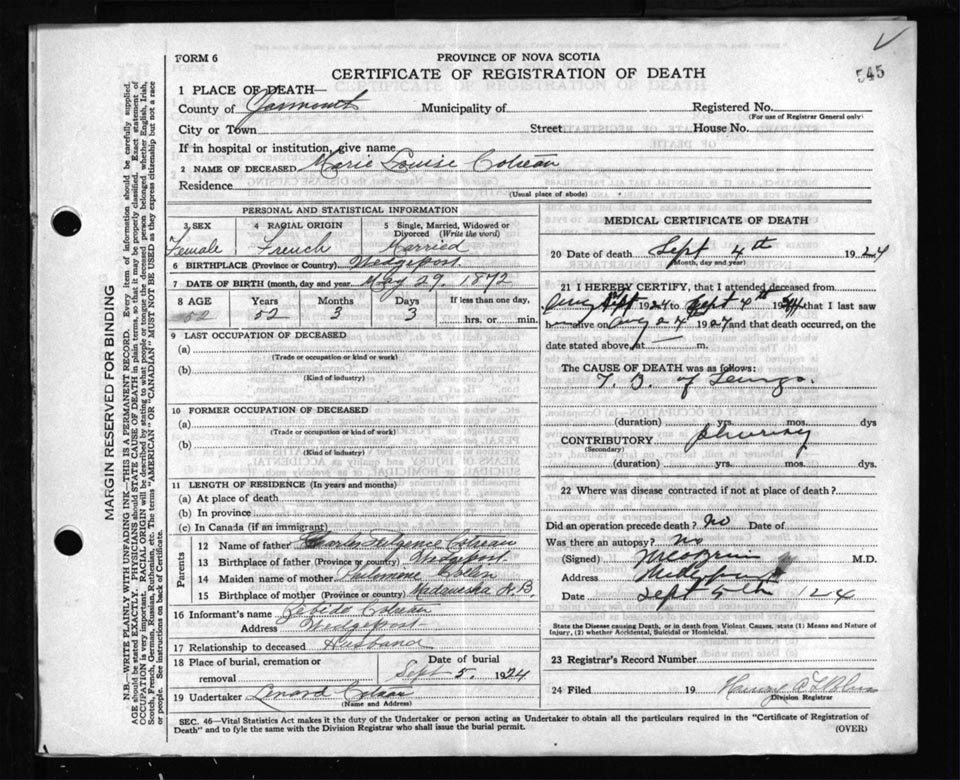 FORM 6
PROVINCE OF NOVA SCOTIA
CERTIFICATE OF REGISTRATION OF DEATH
545
1 PLACE OF DEATH—
County of Yarmouth Municipality of Registered No.
(For use of Registrar General only)
City or Town Street House No.
If in hospital or institution, give name
2 NAME OF DECEASED Marie Louise Cotreau
Residence
(Usual place of abode)
PERSONAL AND STATISTICAL INFORMATION
3 SEX 4 RACIAL ORIGIN 5 Single, Married, Widowed or Divorced (Write the word)
Female French Married
6 BIRTHPLACE (Province or Country) Wedgeport
7 DATE OF BIRTH (month, day and year) May 29. 1872
8 AGE Years Months Days If less than one day,
52 52 3 3 hrs. or min.
9 LAST OCCUPATION OF DECEASED
(a)
(Trade or occupation or kind or work)
(b)
(Kind of industry)
10 FORMER OCCUPATION OF DECEASED
(a)
(Trade or occupation or kind or work)
(b)
(Kind of industry)
11 LENGTH OF RESIDENCE (In years and months)
(a) At place of death
(b) In province
(c) In Canada (if an immigrant)
Parents
12 Name of father Charles Cotreau
13 Birthplace of father (Province or country) Wedgeport
14 Maiden name of mother Philomene
15 Birthplace of mother (Province or country) Madawaska N.B.
16 Informant's name Cotreau
Address Wedgeport
17 Relationship to deceased Husband
18 Place of burial, cremation or Date of burial
removal Sept 5. 1924
19 Undertaker Lenard
(Name and Address)
MEDICAL CERTIFICATE OF DEATH
20 Date of death Sept 4th 1924
(Month, day and year)
21 I HEREBY CERTIFY, that I attended deceased from
1924 to Sept 4th 19 that I last saw
alive on Aug 24 1924 and that death occurred, on the
date stated above, at — m.
The CAUSE OF DEATH was as follows:
T. B. of Lungs.
(duration) yrs. mos. dys
CONTRIBUTORY pleurisy
(Secondary)
(duration) yrs. mos. dys.
22 Where was disease contracted if not at place of death?
Did an operation precede death? No Date of
Was there an autopsy? No
(Signed) M.D.
Address Wedgeport
Date Sept 5th 124
State the Disease causing Death, or in death from Violent Causes, state (1) Means and Nature of
Injury, (2) whether Accidental, Suicidal or Homicidal.
23 Registrar's Record Number
24 Filed 19
Division Registrar
SEC. 46—Vital Statistics Act makes it the duty of the Undertaker or person acting as Undertaker to obtain all the particulars required in the "Certificate of Registration of
Death" and to fyle the same with the Division Registrar who shall issue the burial permit. (OVER)
MARGIN RESERVED FOR BINDING
N.B.—WRITE PLAINLY WITH UNFADING INK—THIS IS A PERMANENT RECORD. Every item of information should be carefully supplied.
AGE should be stated EXACTLY. PHYSICIANS should STATE CAUSE OF DEATH in plain terms, so that it may be properly classified. Exact statement of
OCCUPATION is very important. RACIAL ORIGIN will be described by stating to what people or tongue the deceased person belonged, whether English, Irish,
Scotch, French, German, Russian, Ruthenian, etc. The terms "AMERICAN" OR "CANADIAN" MUST NOT BE USED as they express citizenship but not a race
or people. See instructions on back of Certificate.